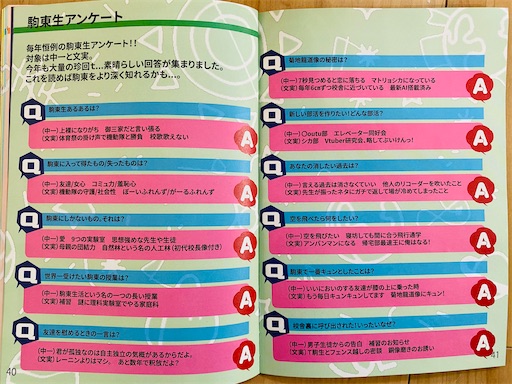 駒東生アンケート
毎年恒例の駒東生アンケート!!
対象は中一と文実。
今年も大量の珍回t...素晴らしい回答が集まりました。
これを読めば駒東をより深く知れるかも...。
Q 駒東生あるあるは?
(中一)上裸になりがち 御三家だと言い張る
(文実)体育祭の掛け声で機動隊と勝負 校歌歌えない
A
Q 駒東に入って得たもの/失ったものは?
(中一)友達/女心 コミュ力/羞恥心
(文実)機動隊の守護/社会性 ぼーいふれんず/がーるふれんず
A
Q 駒東にしかないもの、それは?
(中一)愛 9つの実験室 思想強めな先生や生徒
(文実)母親の団結力 自然林という名の人工林(初代校長像付き)
A
Q 世界一受けたい駒東の授業は?
(中一)駒東生活という名の一つの長い授業
(文実)補習 謎に理科実験室でやる家庭科
A
Q 友達を慰めるときの一言は?
(中一)君が孤独なのは自主独立の気概があるからだよ。
(文実)レーニンよりはマシ。 あと数年で釈放だよ?
A
40
Q 菊地龍道像の秘密は?
(中一)7秒見つめると恋に落ちる マトリョシカになっている
(文実)毎年6cmずつ校舎に近づいている 最新AI搭載済み
A
Q 新しい部活を作りたい!どんな部活?
(中一)〇outu部 エレベーター同好会
(文実)シカ部 Vtuber研究会、略してぶいけんっ!
A
Q あなたの消したい過去は?
(中一)言える過去は消さなくていい 他人のリコーダーを吹いたこと
(文実)先生が振ったネタにガチで返して場が冷めてしまったこと
A
Q 空を飛べたら何をしたい?
(中一)空を飛びたい 寝坊しても間に合う飛行通学
(文実)アンパンマンになる 帰宅部最速王に俺はなる!
A
Q 駒東で一番キュンとしたことは?
(中一)いいにおいのする友達が膝の上に乗った時
(文実)もう毎日キュンキュンしてます 菊地龍道像にキュン!
A
Q 校舎裏に呼び出された!いったいなぜ?
(中一)男子生徒からの告白 補習のお知らせ
(文実)T駒生とフェンス越しの密談 銅像磨きのお誘い
A
41